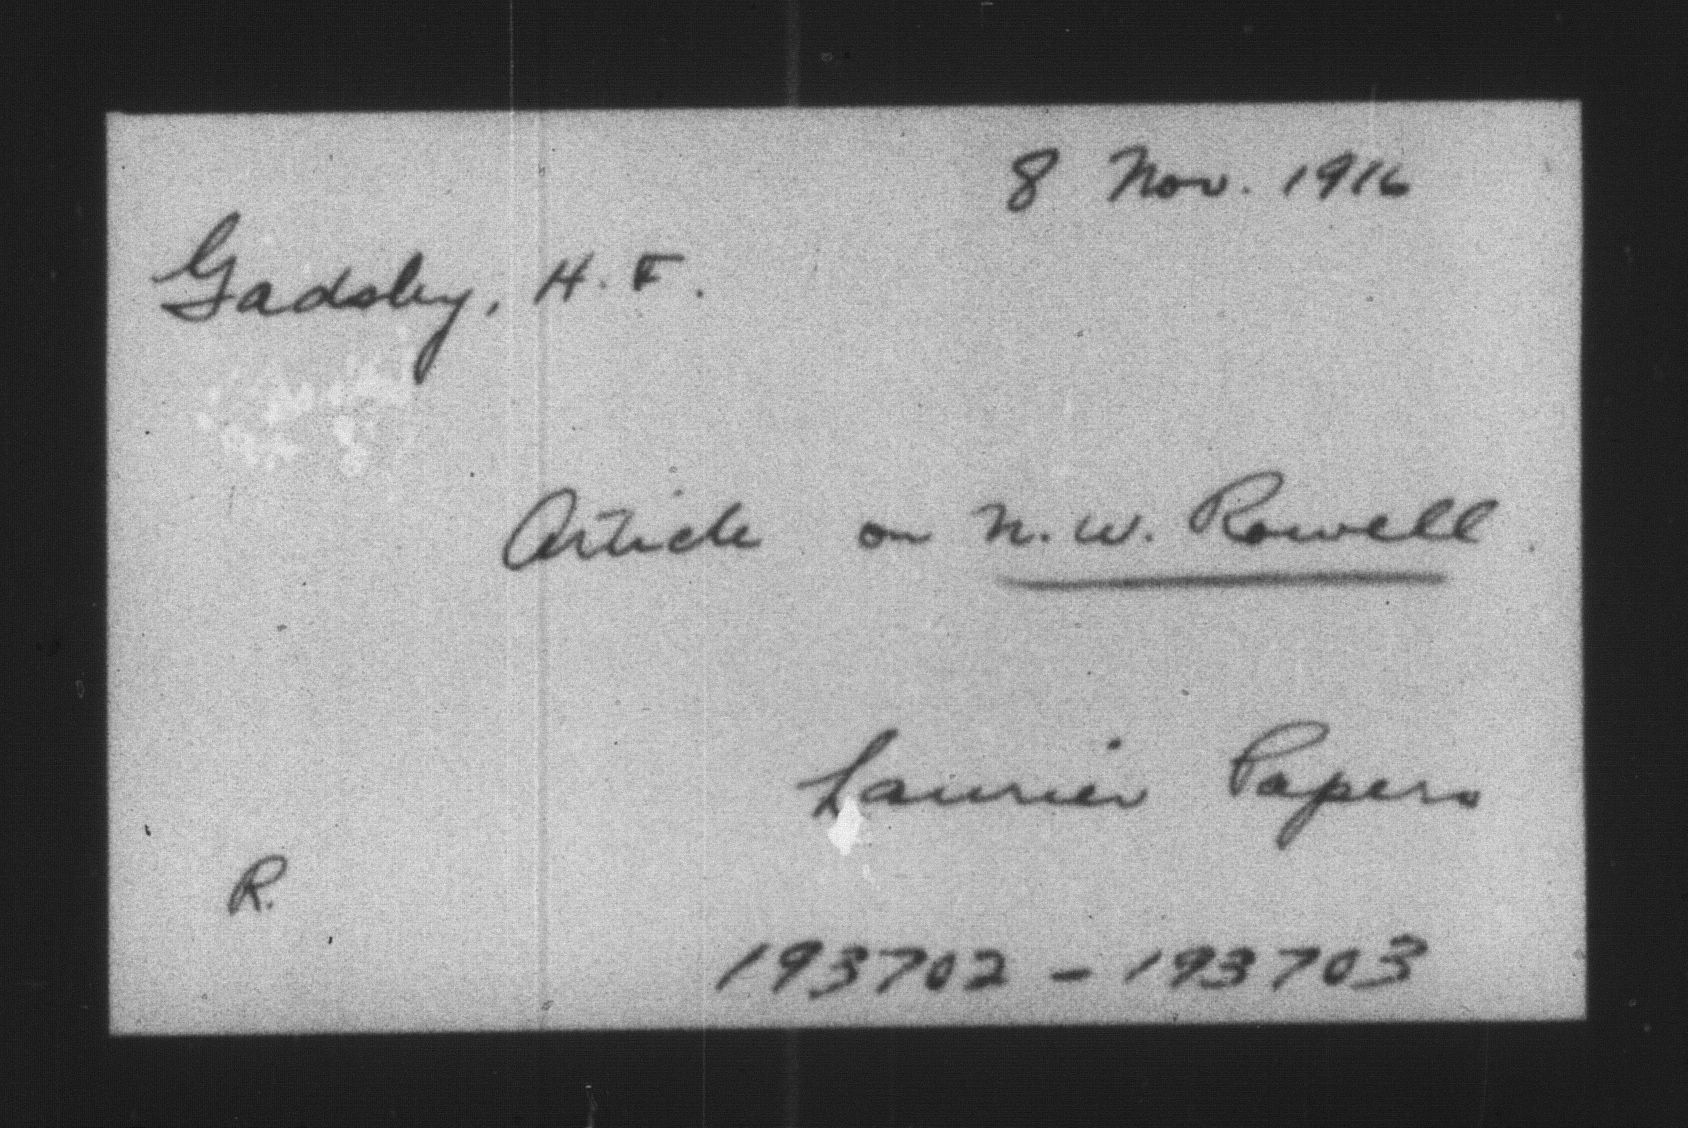 8 Nov. 1916
Gadsby, H. F.
Article on N. W. Rowell.
Laurier Papers
R.
193702 - 193703